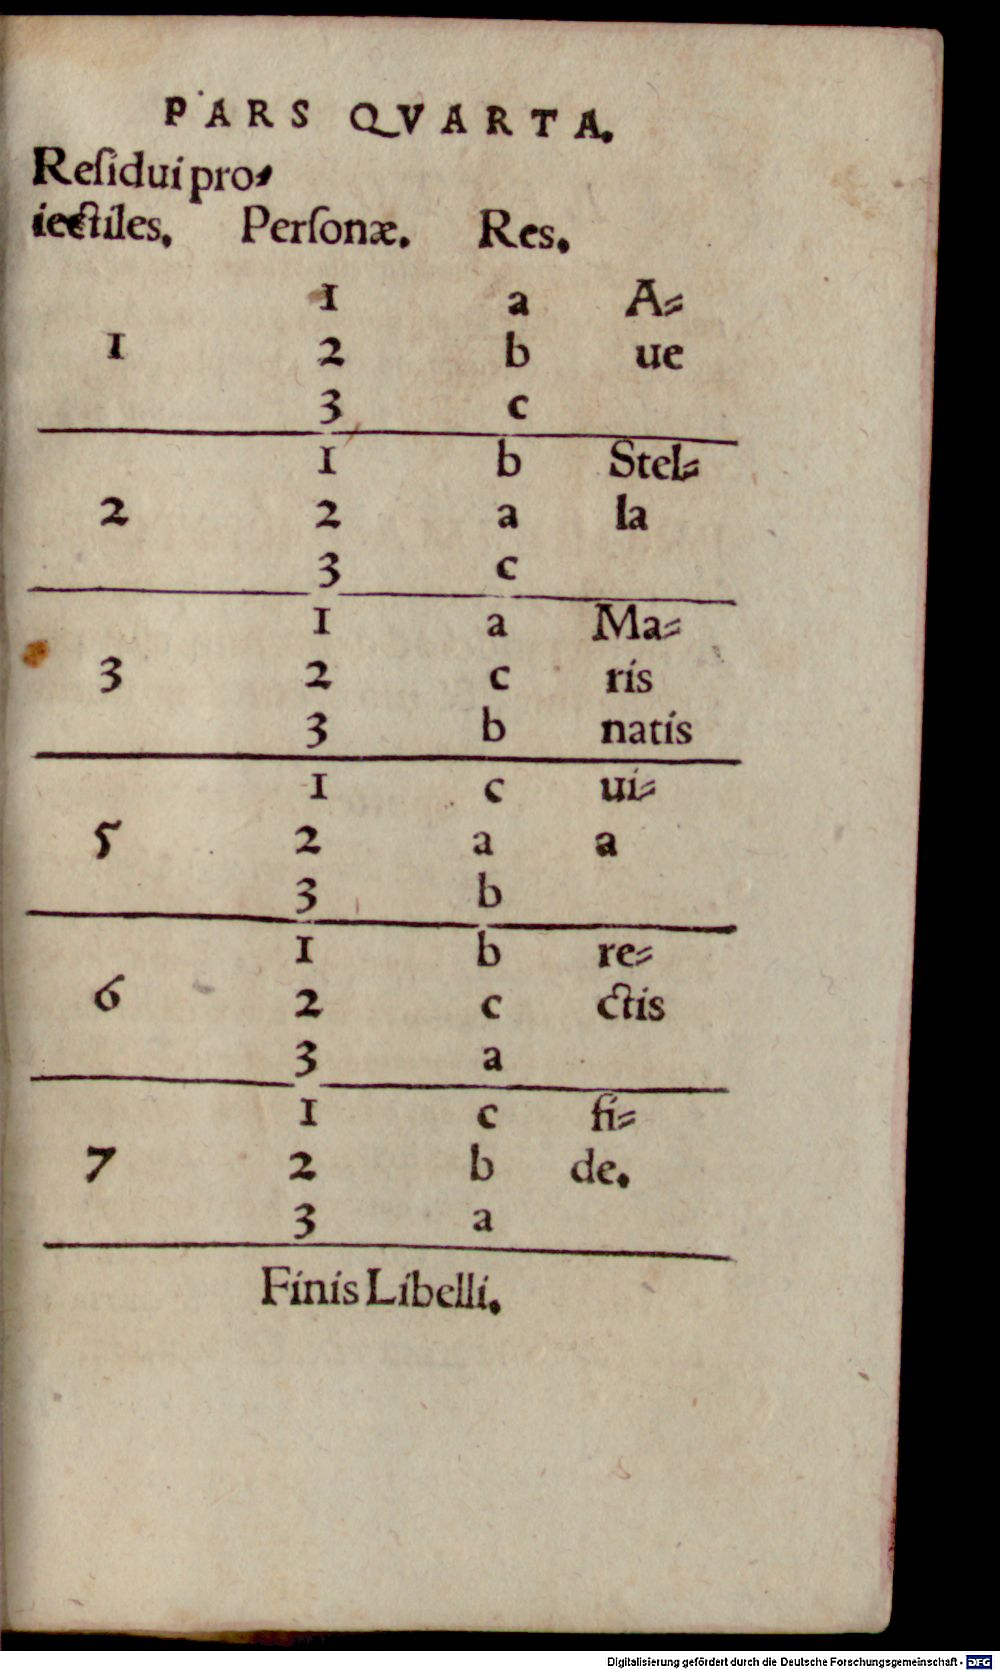 PARS QVARTA.
Reſidui pro⸗
iectiles. Perſonæ. Res.
1 a A⸗
1 2 b ue
3 c
1 b Stel⸗
2 2 a la
3 c
1 a Ma⸗
3 2 c ris
3 b natis
1 c ui⸗
5 2 a a
3 b
1 b re⸗
6 2 c ctis
3 a
1 c fi⸗
7 2 b de.
3 a
Finis Libelli.
Digitalisierung gefördert durch die Deutsche Forschungsgemeinschaft - DFG